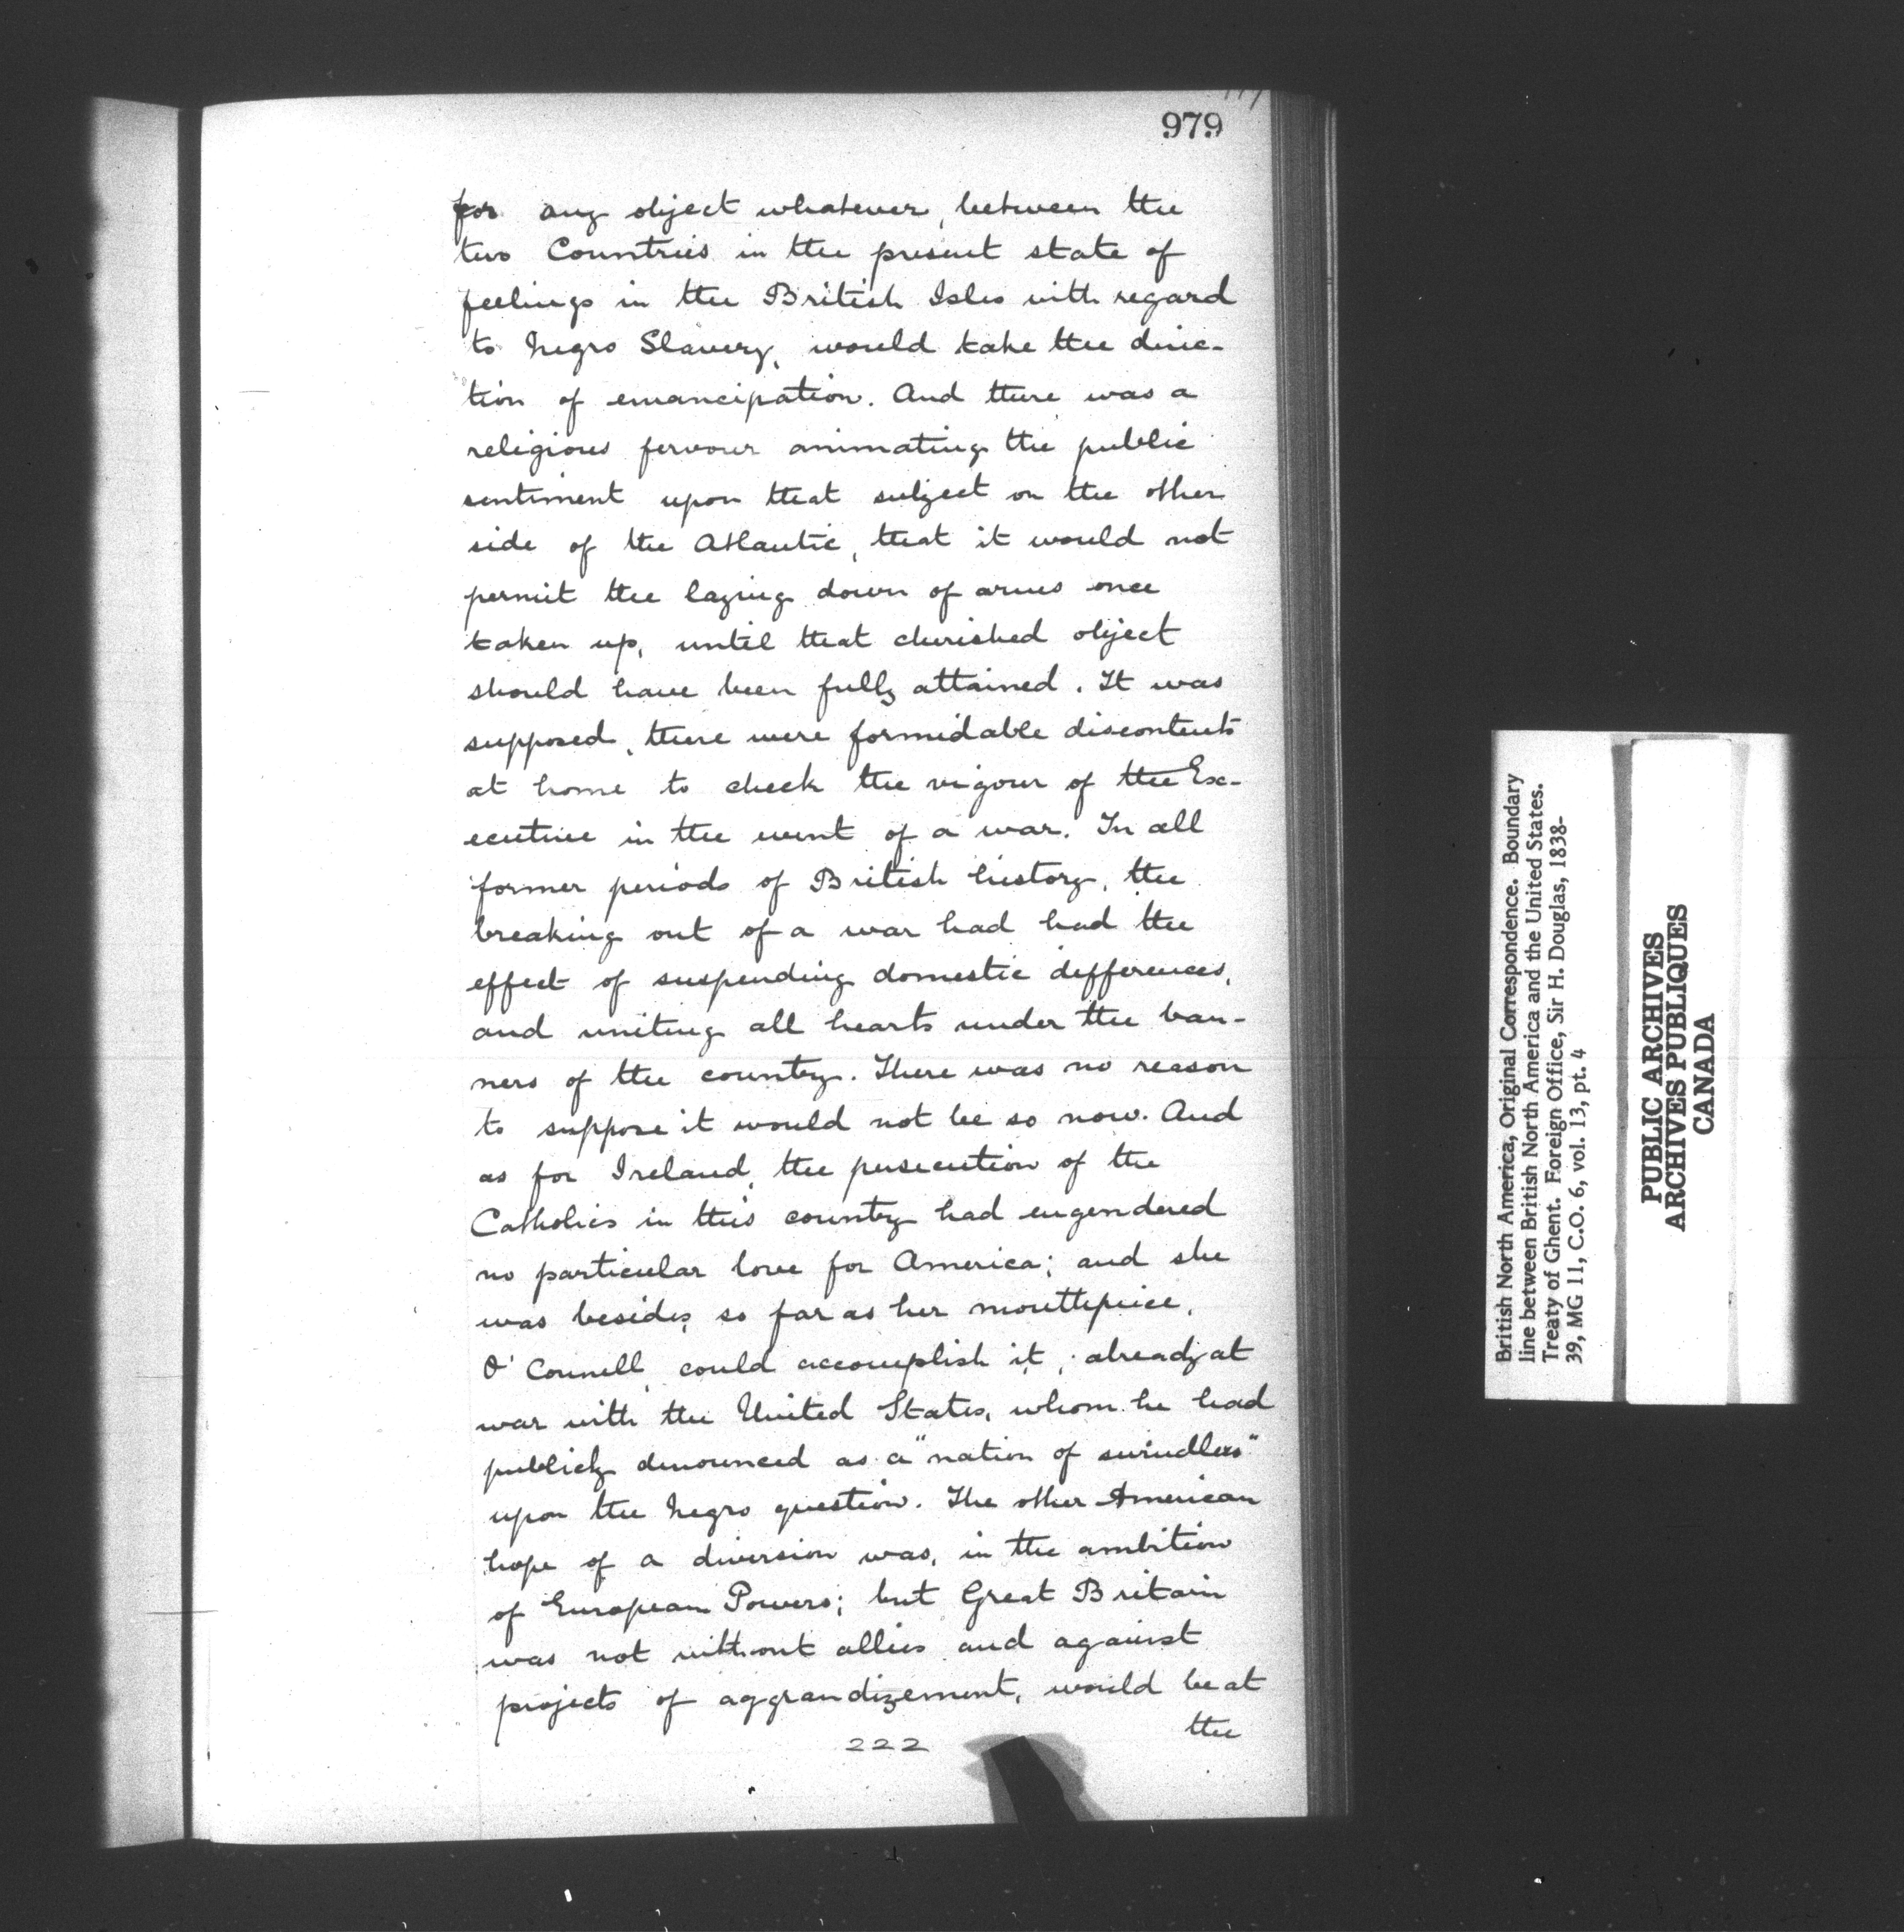 979
for any object whatever, between the
two Countries in the present state of
feelings in the British Isles with regard
to Negro Slavery, would take the direc-
tion of emancipation. And there was a
religious fervour animating the public
sentiment upon that subject on the other
side of the Atlantic, that it would not
permit the laying down of arms once
taken up, until that cherished object
should have been fully attained. It was
supposed, there were formidable discontents
at home to check the vigour of the Ex-
ecutive in the event of a war. In all
former periods of British history, the
breaking out of a war had had the
effect of suspending domestic differences,
and uniting all hearts under the ban-
ners of the country. There was no reason
to suppose it would not be so now. And
as for Ireland, the persecution of the
Catholics in this country had engendered
no particular love for America; and she
was besides, so far as her mouthpiece,
O'Connell, could accomplish it, already at
war with the United States, whom he had
publicly denounced as a "nation of swindlers"
upon the Negro question. The other American
hope of a diversion was, in the ambition
of European Powers; but Great Britain
was not without allies and against
projects of aggrandizement, would be at
the
222
British North America, Original Correspondence. Boundary
line between British North America and the United States.
Treaty of Ghent. Foreign Office, Sir H. Douglas, 1838-
39, MG 11, C.O. 6, vol. 13, pt. 4
PUBLIC ARCHIVES
ARCHIVES PUBLIQUES
CANADA